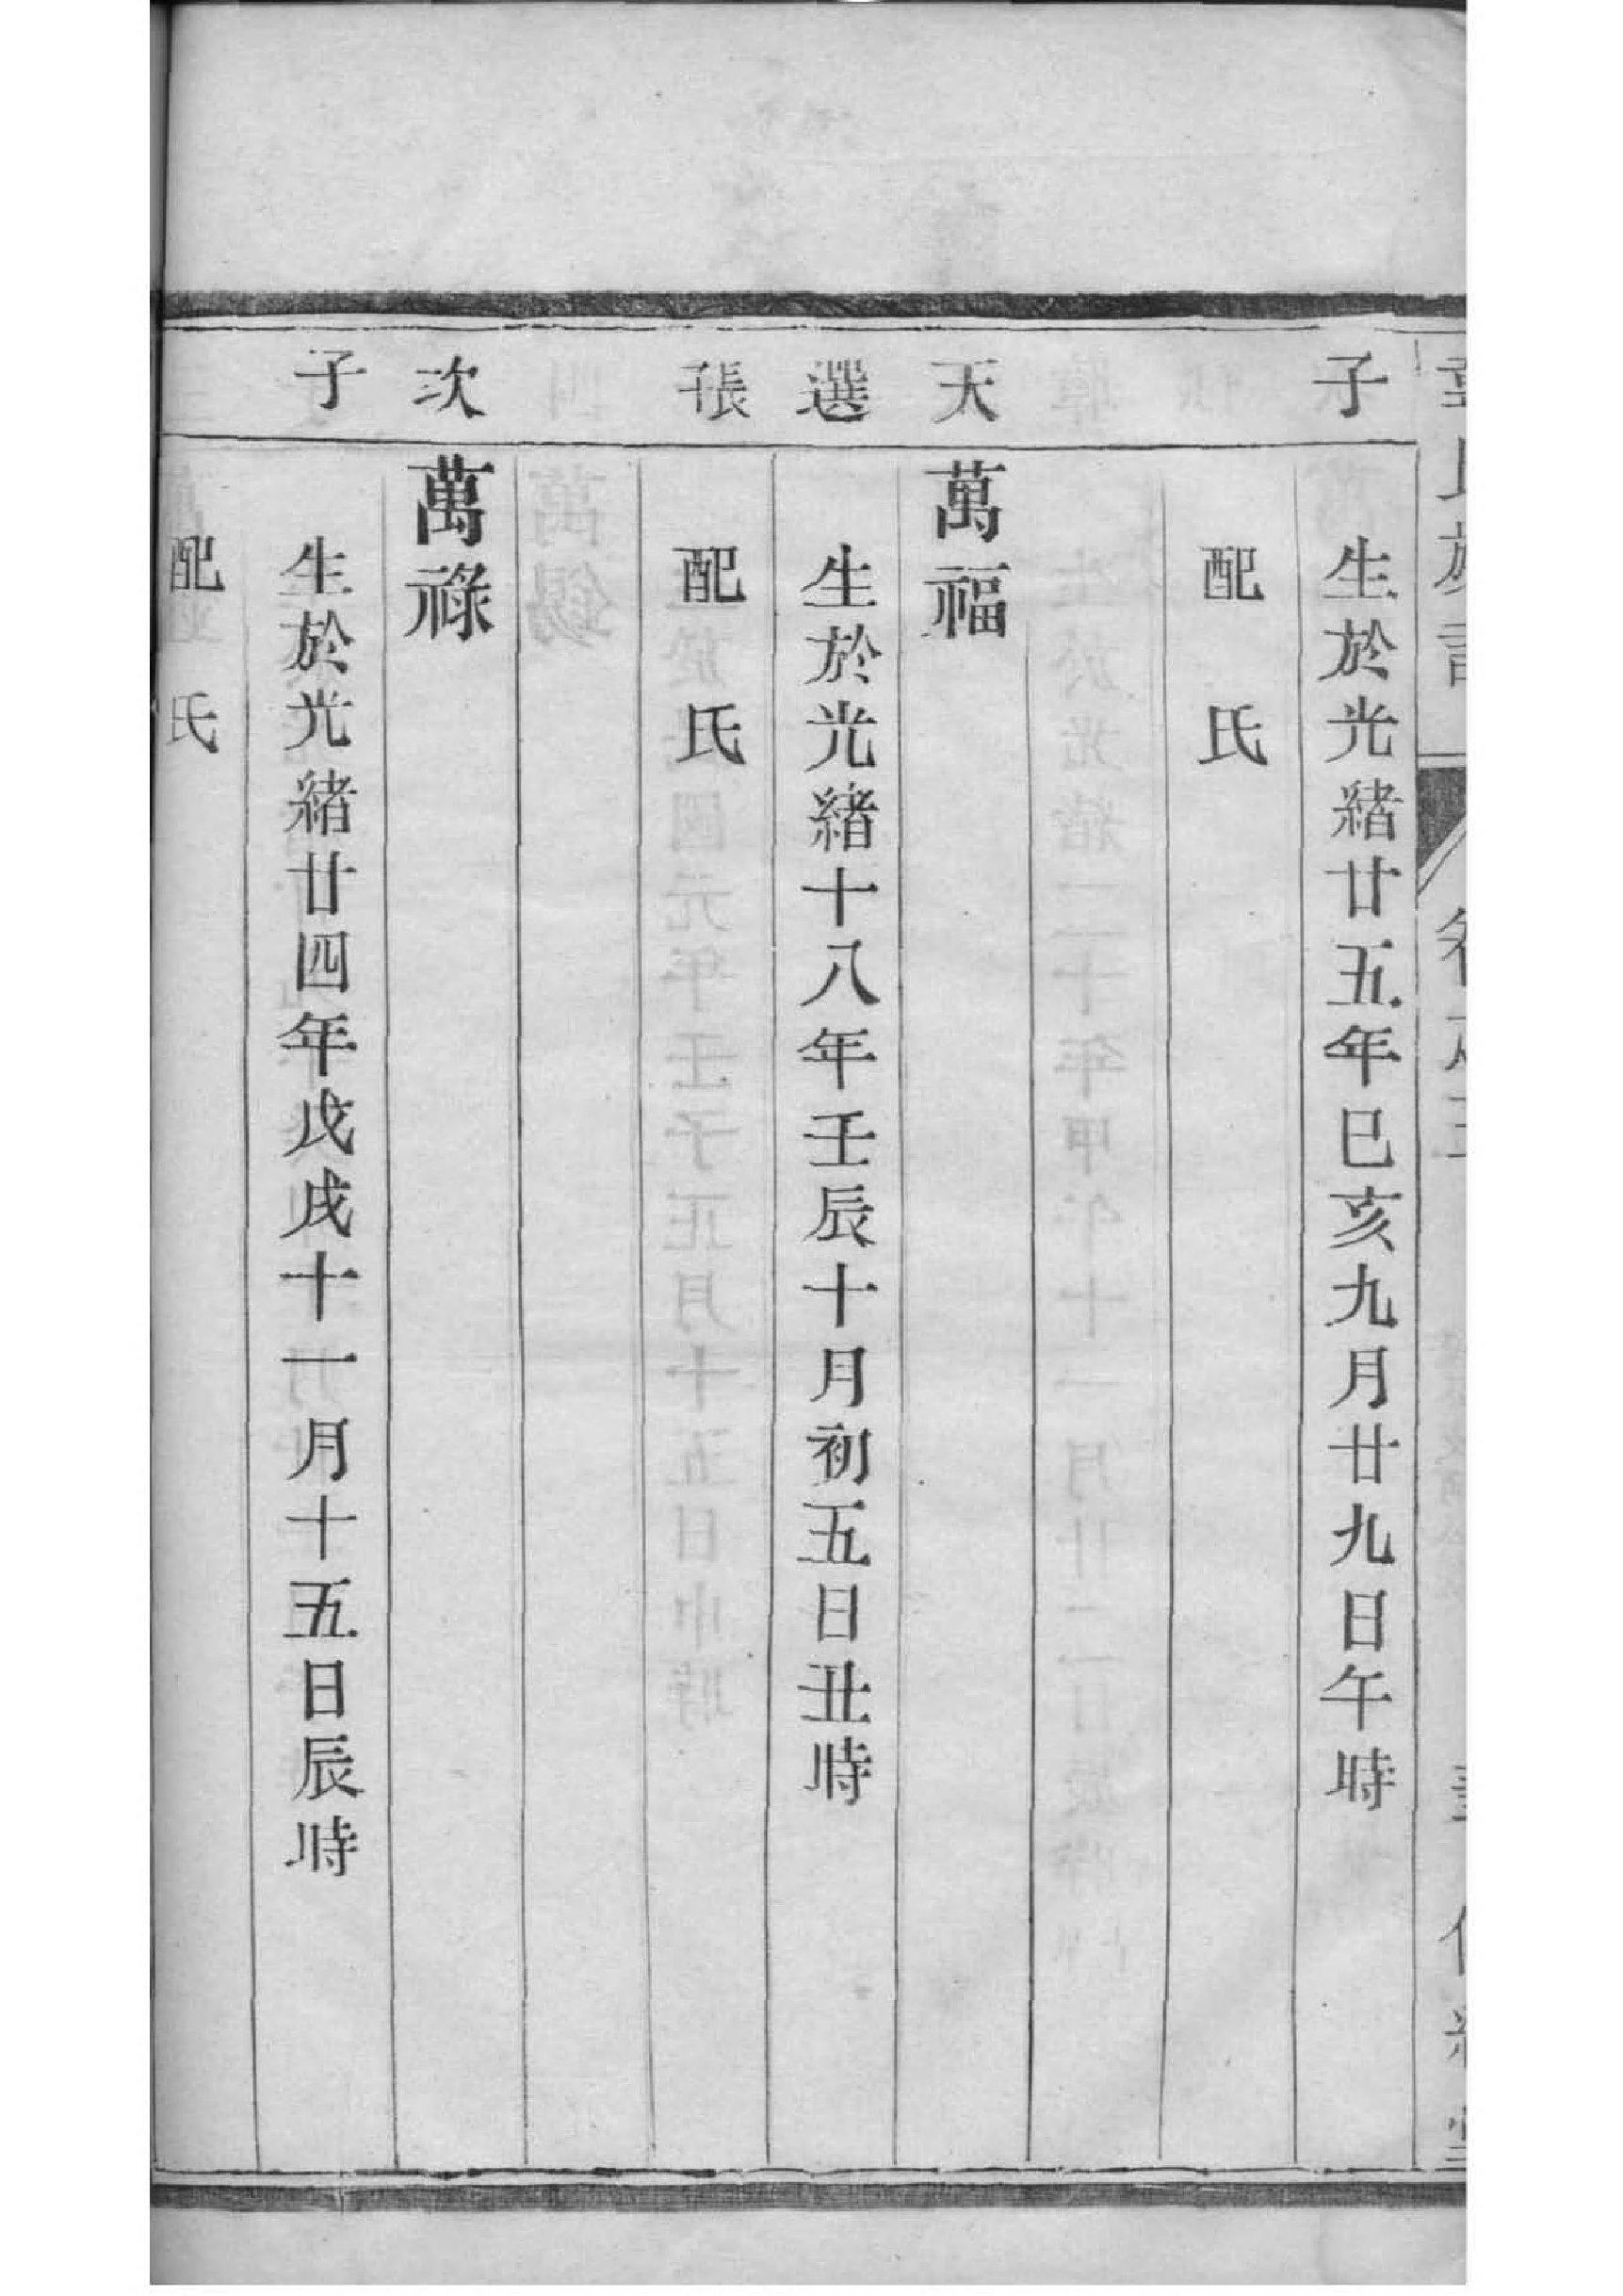 子
生於光緒廿五年巳亥九月廿九日午時
配　氏
天
萬福
選
生於光緒十八年壬辰十月初五日丑時
張
配　氏
次
萬祿
子
生於光緒廿四年戊戌十一月十五日辰時
配　氏